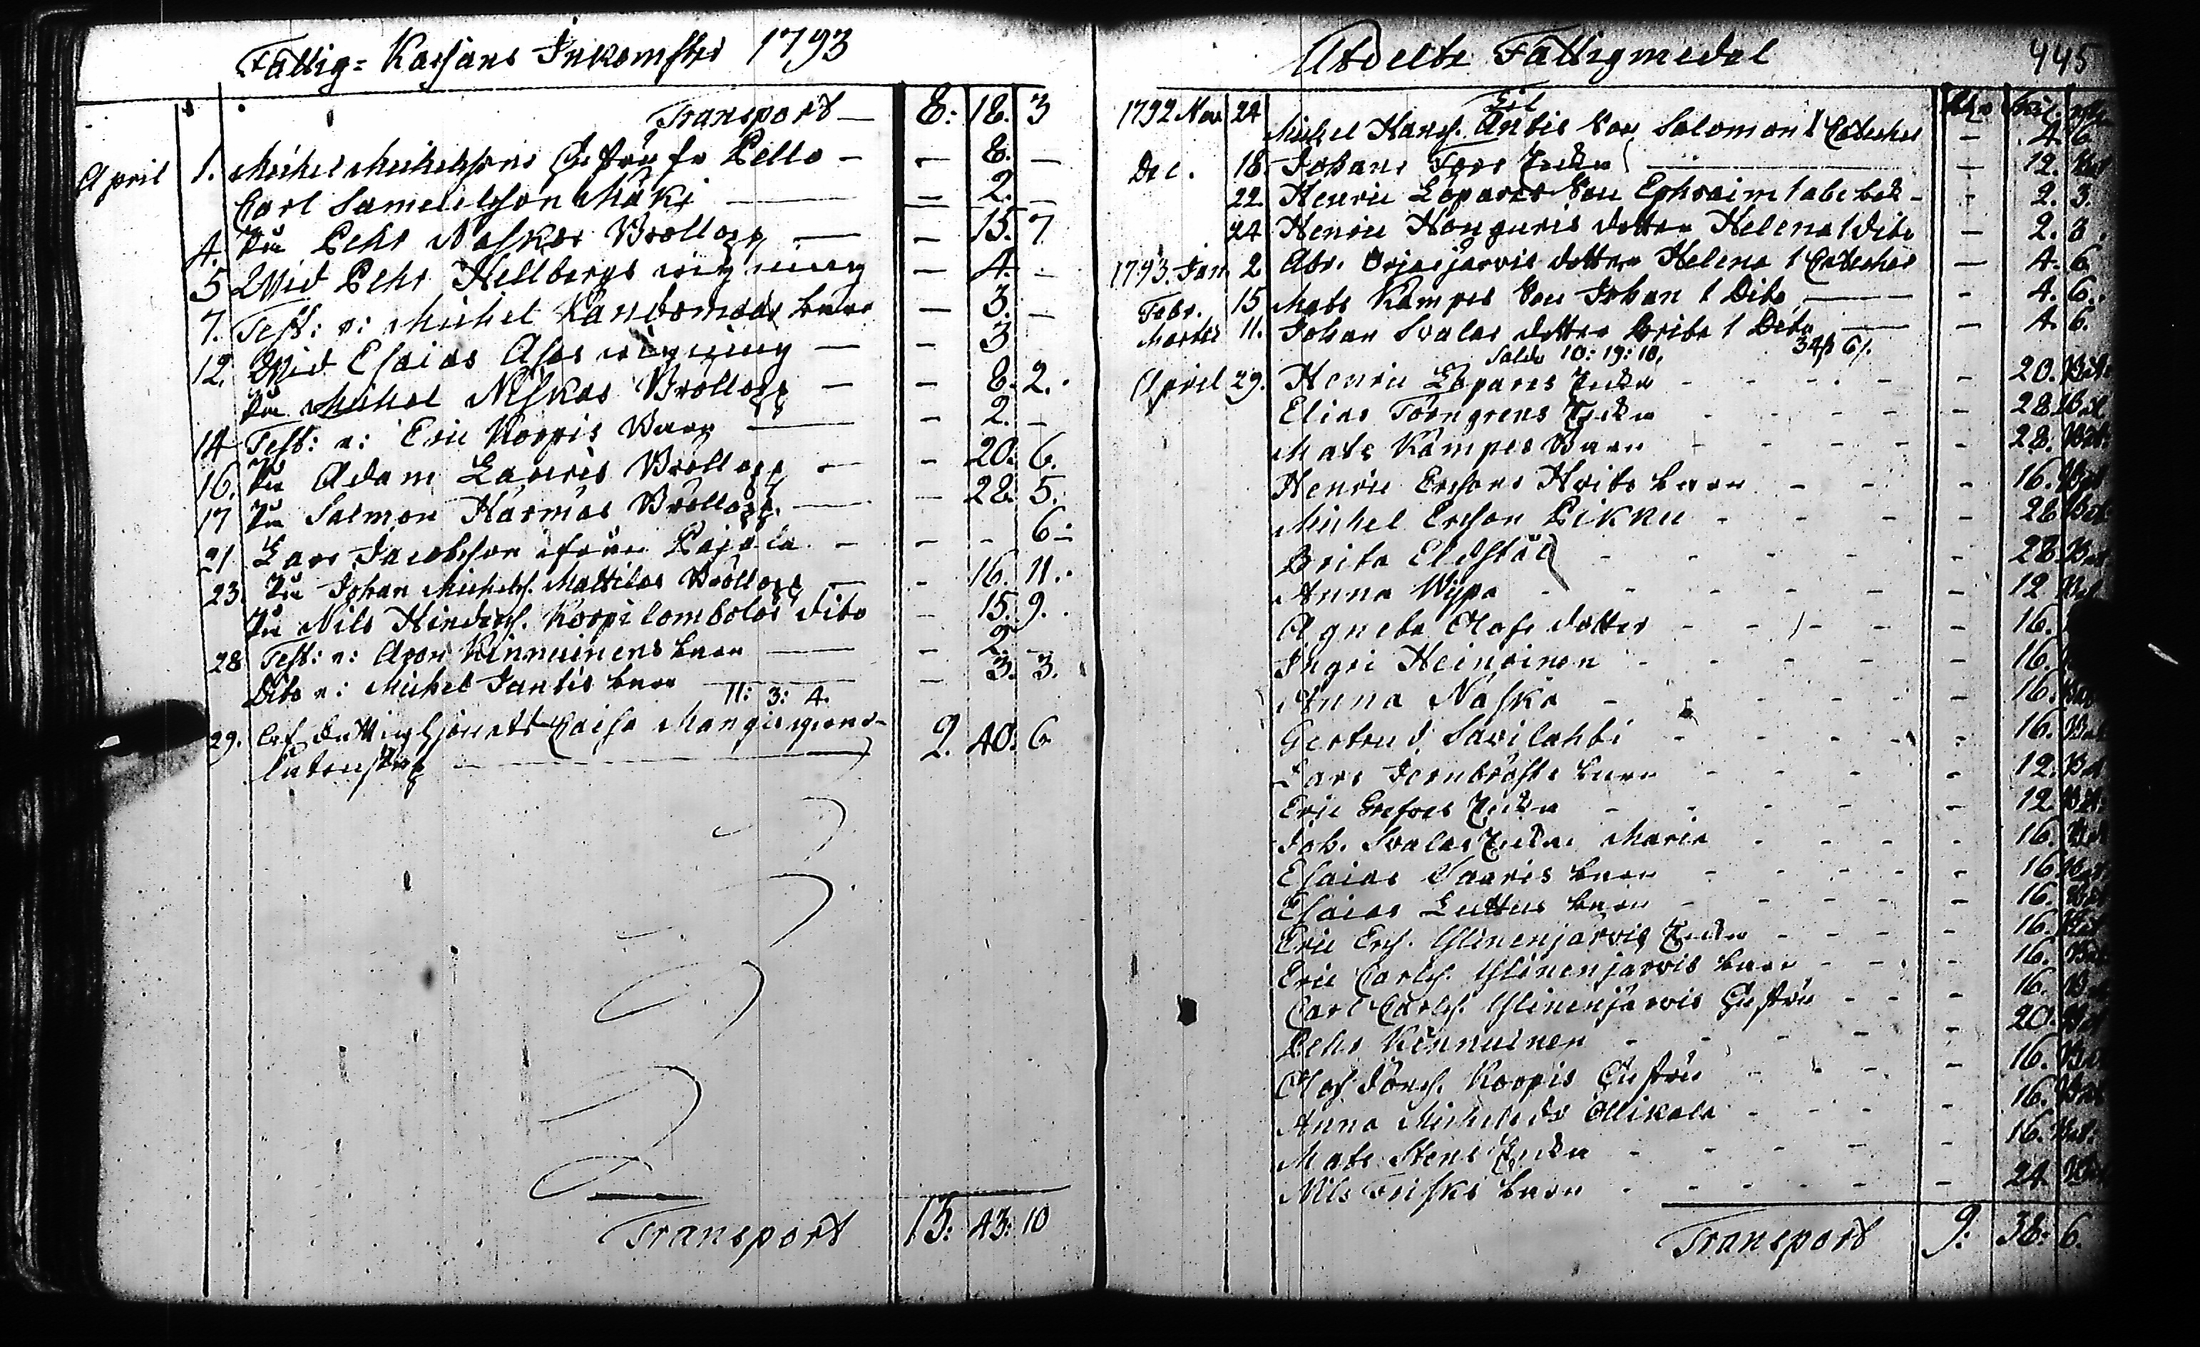 Fattig= Kassans Inkomster 1793
Transport — 8: 18. 3
April 1. Michel Michelssons Hustru fr Pello — — 8. —
Carl Samuelsson Mäki — — 2. —
4. På Pehr Naskas Bröllopp — — 15. 7
5 Wid Pehr Hellbergs wigning — 4. -
7. Test: e: Michel barn — 3. —
12. Wid Esaias Asas wigning — — 3
På Michel Niskas Bröllopp — — 8. 2.
14 Test: e: Eric Koopis Barn — — 2. -
16. På Adam Lauris Bröllopp — — 20. 6.
17 På Salmon Harmas Bröllopp. — — 28. 5.
21 Lars Jacobsson ifrån Pajala - - - 6:
23. På Johan Michels. Mattilas Bröllopp — - 16. 11.
På Nils Hindrichs. Koopilombolos dito - 15. 9.
28 Test: e: Aron Kinnuinens barn — - 2. -
Dito e: Michel Jantis barn — 3. 3.
11: 3: 4.
29. Af Fattighjonets Caisa 2. 40. 6
Transport 13: 43: 10
Utdelte Fattigmedel 445
1792 Nov 24 Michel Hansf. Antis Son Salomon 1 Cateches — 4. 6.
Til
Dec. 18. Johans Fors Enka — 12.
22. Henric Lapares Son Ephraim 1 abc bok - - 2. 3.
24 Henric Honguris dotter Helena 1 dito — 2. 3.
1793. Jan 2. Abr. dotter Helena 1 Cateches — 4. 6
Febr. 15 Mats Kämpes Son Johan 1 Dito — - 4. 6.
Martii 11. Johan Svalas dotter Brita 1 Dito — - 4. 6.
Saldo 10: 19: 10.
34ß 6/.
April 29. Henric Lapares Enka - - - 20.
Elias Törngrens Enka - - - 28
Mats Kämpes Barn - - - 28.
Henric Ersons Hvits barn - - - 16.
Michel Erson Pikku - - - 28
Brita Eldstål - - - 28
Anna Wijpa - - - 12
Agneta Olofs dotter - - - 16.
Ingri Heinoinen - - - 16.
Anna Naska - - - 16.
Gertrud Savilahti - - - 16.
Lars barn - - - 12.
Eric Enka - - - 12
Joh. Svalas Enka Maria - - - 16.
Esaias Saaris barn - - - 16
Esaias Luttus barn - - - 16.
Eric Ersf. Ylinenjärvis Enka - - - 16.
Eric Carlsf. Ylinenjärvis barn - - - 16.
Carl Carlsf. Ylinenjärvis Hustru - - - 16.
Pehr Kinnuinen - - - 20.
Olof Jönsf. Koopis Hustru - - - 16.
Anna Michelsdr Ollikala - - - 16.
Mats Stens Enka - - - 16.
Nils Frisks barn - - - 24
Transport 9: 38: 6.